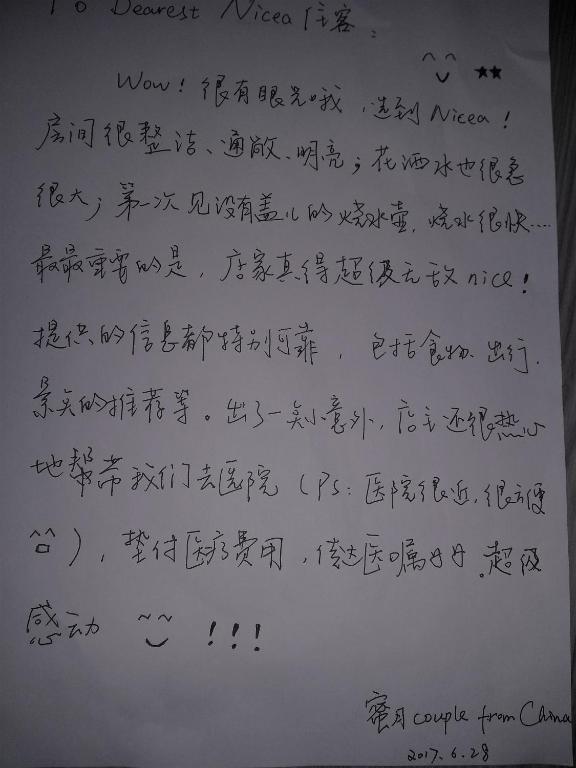 To Dearest Nicea 住客:
Wow! 很有眼光哦, 选到 Nicea!
房间很整洁、通敞、明亮; 花洒水也很急
很大; 第一次见没有盖儿的烧水壶, 烧水很快....
最最重要的是, 店家真得超级无敌 nice!
提供的信息都特别可靠, 包括食物、出行、
景点的推荐等。出了一点小意外, 店主还很热心
地帮带我们去医院 (Ps: 医院很近, 很方便
^^), 垫付医疗费用, 传达医嘱。超级
感动 ~~ !!!
蜜月 couple from China
2017.6.28